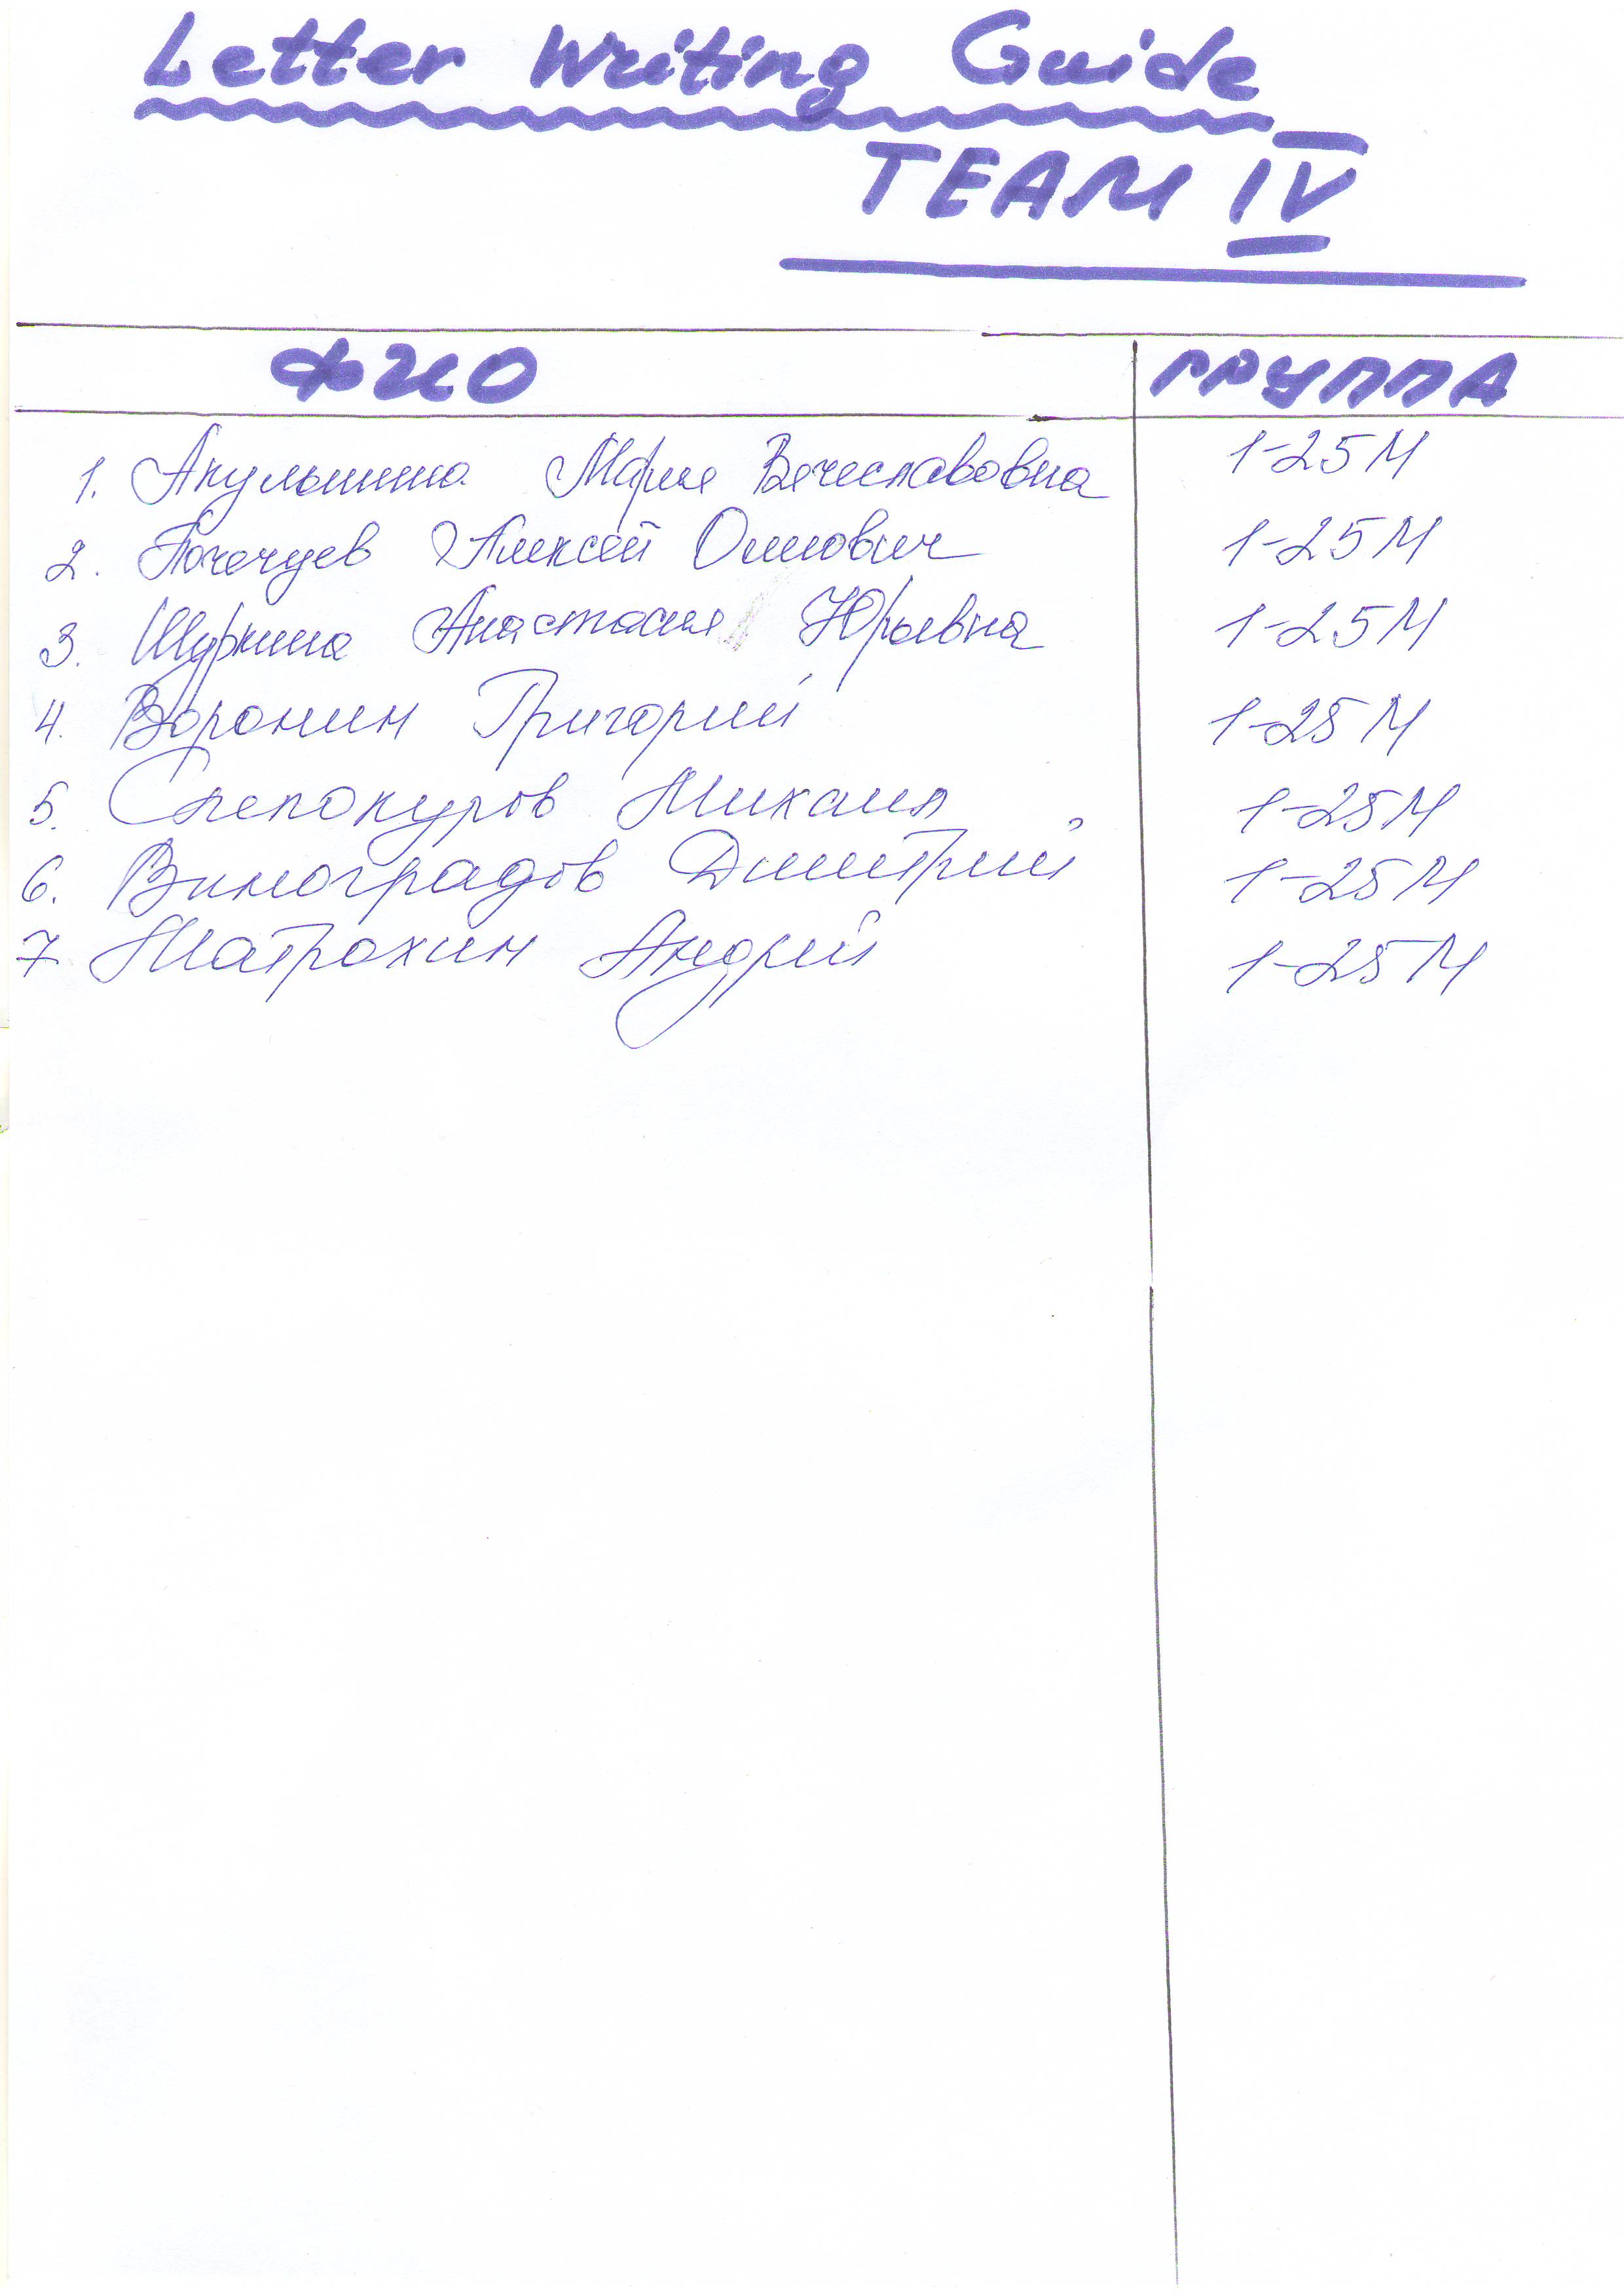 Letter Writing Guide
TEAM IV
ФИО ГРУППА
1. Акульшина Мария Вячеславовна 1-25М
2. Алексей 1-25М
3. Анастасия Юрьевна 1-25М
4. Воронин Григорий 1-25М
5. Слепокуров Михаил 1-25М
6. Виноградов Дмитрий 1-25М
7 Матрохин Андрей 1-25М